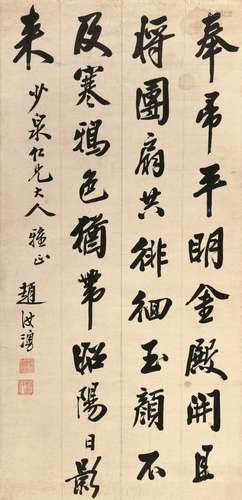 奉帚平明金殿開且
將團扇共徘徊玉顏不
及寒鴉色猶帶昭陽日影
来
少泉仁兄大人雅正
趙